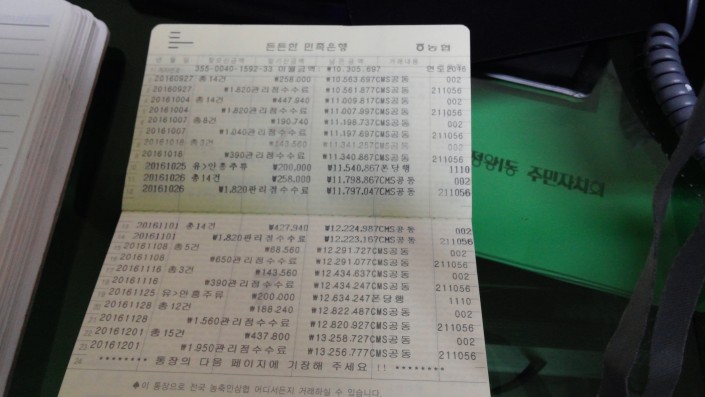 든든한 민족은행 농협
355-0040-1592-33 이월금액: ₩10,305,697
20160927 총14건 ₩258,000 ₩10,563,697CMS공동 002
20160927 ₩1,820관리점수수료 ₩10,561,877CMS공동 211056
20161004 총14건 ₩447,940 ₩11,009,817CMS공동 002
20161004 ₩1,820관리점수수료 ₩11,007,997CMS공동 211056
20161007 총6건 ₩190,740 ₩11,198,737CMS공동 002
20161007 ₩1,040관리점수수료 ₩11,197,697CMS공동 211056
20161016 총3건 ₩143,560 ₩11,341,257CMS공동 002
20161016 ₩390관리점수수료 ₩11,340,867CMS공동 211056
20161025 유>만흥주류 ₩200,000 ₩11,540,867본당행 1110
20161026 총14건 ₩258,000 ₩11,798,867CMS공동 002
20161026 ₩1,820관리점수수료 ₩11,797,047CMS공동 211056
20161101 총14건 ₩427,940 ₩12,224,987CMS공동 002
20161101 ₩1,820관리점수수료 ₩12,223,167CMS공동 211056
20161108 총5건 ₩68,560 ₩12,291,727CMS공동 002
20161108 ₩650관리점수수료 ₩12,291,077CMS공동 211056
20161116 총3건 ₩143,560 ₩12,434,637CMS공동 002
20161116 ₩390관리점수수료 ₩12,434,247CMS공동 211056
20161125 유>만흥주유 ₩200,000 ₩12,634,247본당행 1110
20161128 총12건 ₩188,240 ₩12,822,487CMS공동 002
20161128 ₩1,560관리점수수료 ₩12,820,927CMS공동 211056
20161201 총15건 ₩437,800 ₩13,258,727CMS공동 002
20161201 ₩1,950관리점수수료 ₩13,256,777CMS공동 211056
24 ******** 통장의 다음 페이지에 기장해 주세요 !! ********
이 통장으로 전국 농축인삼협 어디서든지 거래하실 수 있습니다.
주민자치회